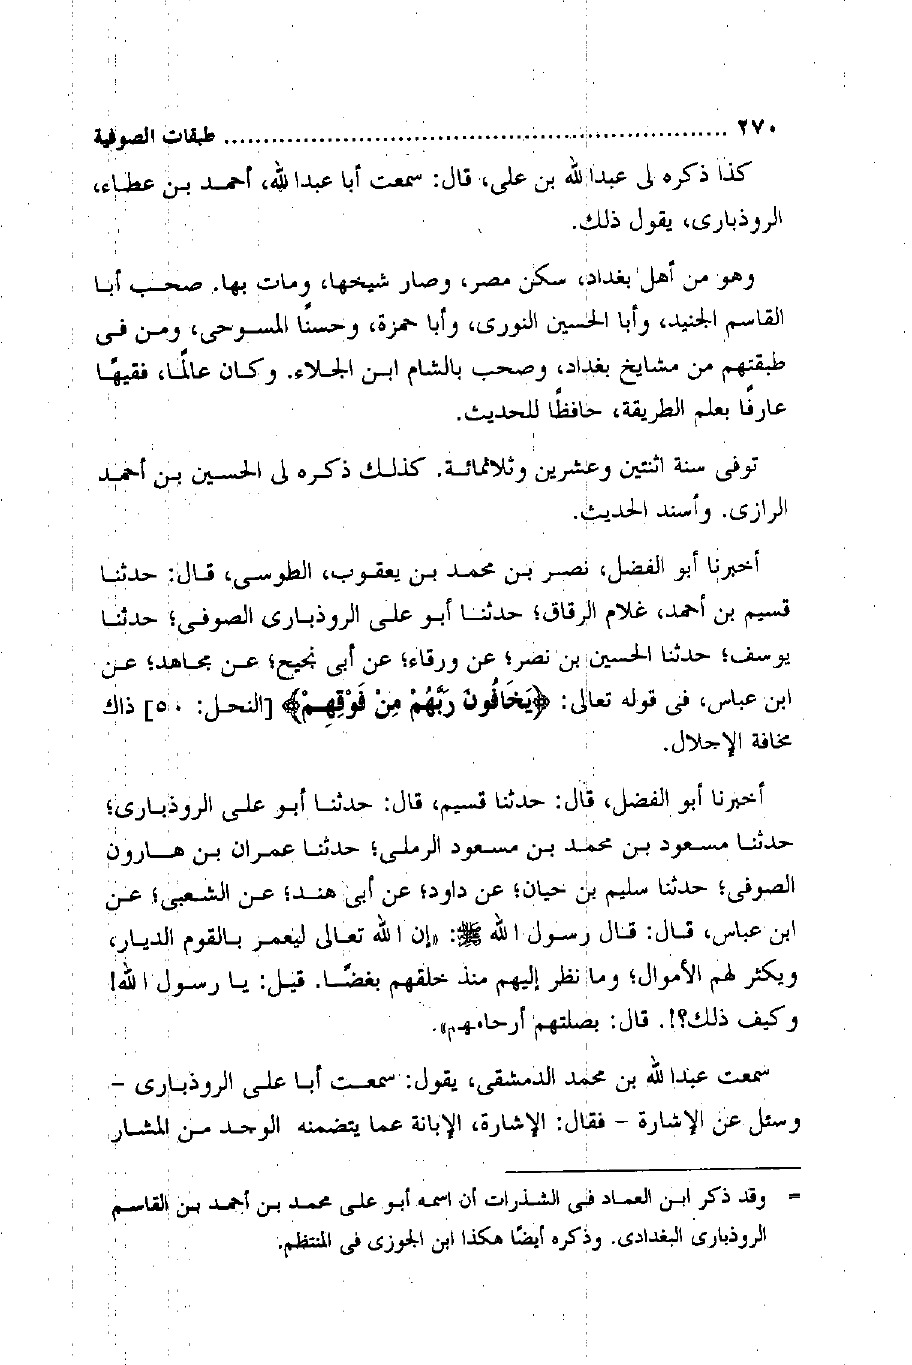 ٢٧٠ ........................................................................ طبقات الصوفية
كذا ذكره لى عبدالله بن على، قال: سمعت أبا عبدالله، أحمد بن عطاء،
الروذبارى، يقول ذلك.
وهو من أهل بغداد، سكن مصر، وصار شيخها، ومات بها. صحب أبا
القاسم الجنيد، وأبا الحسين النورى، وأبا حمزة، وحسنًا المسوحى، ومن فى
طبقتهم من مشايخ بغداد، وصحب بالشام ابن الجلاء. وكان عالمًا، فقيهًا
عارفًا بعلم الطريقة، حافظًا للحديث.
توفى سنة اثنتين وعشرين وثلاثمائة. كذلك ذكره لى الحسين بن أحمد
الرازى. وأسند الحديث.
أخبرنا أبو الفضل، نصر بن محمد بن يعقوب، الطوسى، قال: حدثنا
قسيم بن أحمد، غلام الرقاق؛ حدثنا أبو على الروذبارى الصوفى؛ حدثنا
يوسف؛ حدثنا الحسين بن نصر؛ عن ورقاء؛ عن أبى نجيح؛ عن مجاهد؛ عن
ابن عباس، فى قوله تعالى: ﴿يَخَافُونَ رَبَّهُمْ مِنْ فَوْقِهِمْ﴾ [النحل: ٥٠] ذاك
مخافة الإجلال.
أخبرنا أبو الفضل، قال: حدثنا قسيم، قال: حدثنا أبو على الروذبارى؛
حدثنا مسعود بن محمد بن مسعود الرملى؛ حدثنا عمران بن هارون
الصوفى؛ حدثنا سليم بن حيان؛ عن داود؛ عن أبى هند؛ عن الشعبى؛ عن
ابن عباس، قال: قال رسول الله ﷺ: «إن الله تعالى ليعمر بالقوم الديار،
ويكثر لهم الأموال؛ وما نظر إليهم منذ خلقهم بغضًا. قيل: يا رسول الله!
وكيف ذلك؟!. قال: بصلتهم أرحامهم».
سمعت عبدالله بن محمد الدمشقى، يقول: سمعت أبا على الروذبارى -
وسئل عن الإشارة - فقال: الإشارة، الإبانة عما يتضمنه الوجد من المشار
= وقد ذكر ابن العماد فى الشذرات أن اسمه أبو على محمد بن أحمد بن القاسم
الروذبارى البغدادى. وذكره أيضًا هكذا ابن الجوزى فى المنتظم.